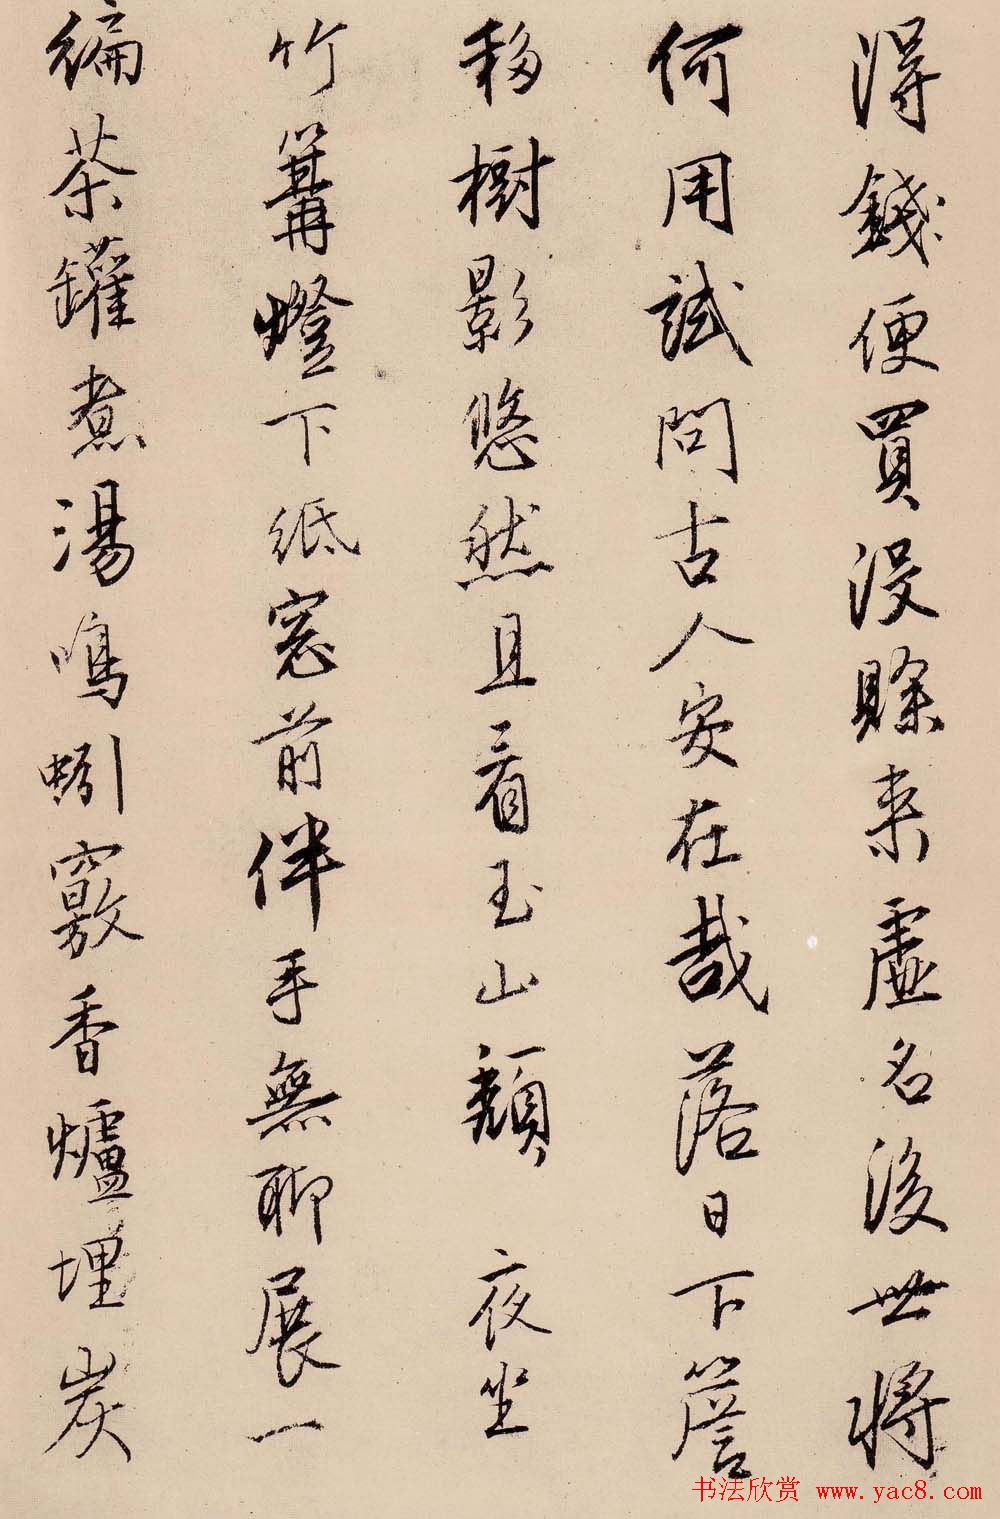 得錢便買沒賒来虛名後世將
何用試問古人安在哉落日下簷
移樹影悠然且看玉山頹 夜坐
竹篝燈下纸窓前伴手無聊展一
編茶罐煮湯鳴蚓竅香爐埋炭
书法欣赏 www.yac8.com